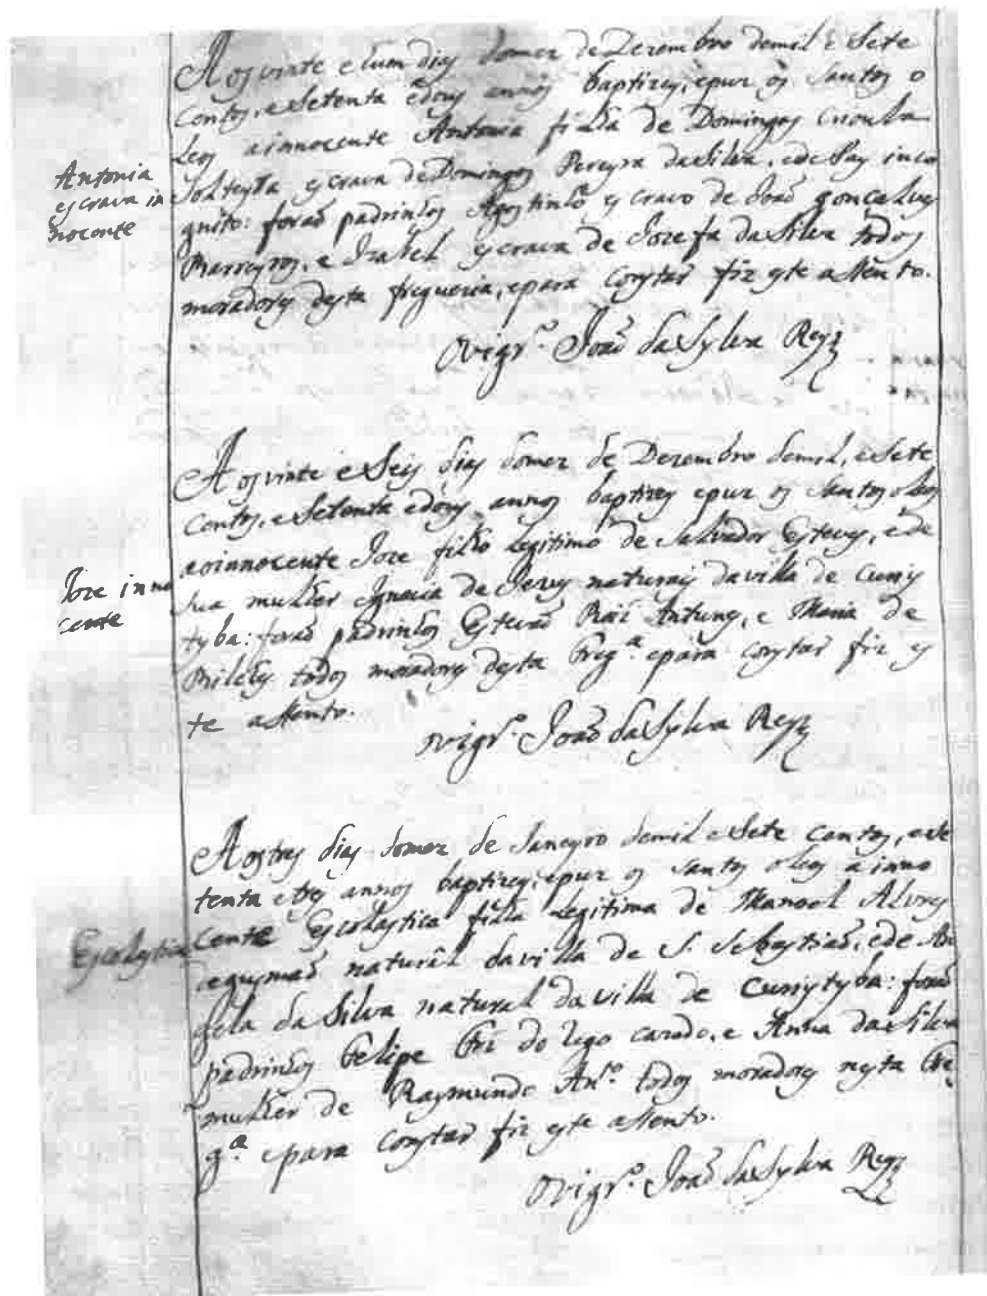 Aos vinte e hum dias do mez de Dezembro de mil e Sete
centos, e Setenta e dous annos baptizey, e puz os Santos o
leos a innocente Antonia filha de Domingas crioula
Antonia
escrava in
nocente
Solteyra escrava de Domingos Pereyra da Silva, e de Pay inco
gnito: foraõ padrinhos Agostinho escravo de Joaõ gonçalves
Barreyros, e Izabel escrava de Jozefa da Silva todos
moradores desta freguezia, e para constar fiz este assento.
O vigr.º Joaõ da Sylva Reys
Aos vinte e Seis dias do mez de Dezembro de mil, e Sete
centos, e Setenta e dous annos baptizey e puz os Santos oleos
ao innocente Joze filho legitimo de Salvador Esteves, e de
Joze inno
cente
Sua mulher Ignacia de Jesus naturais da villa de Curiy
tyba: foraõ padrinhos Estevaõ Antunes, e Maria de
todos moradores desta Freg.ª e para constar fiz es
te assento.
O vigr.º Joaõ da Sylva Reys
Aos tres dias do mez de Janeyro de mil e Sete centos, e Se
tenta e tres annos baptizey, e puz os Santos oleos a inno
Escolastica
cente Escolastica filha legitima de Manoel Alvres
natural da villa de S. Sebastiaõ, e de An
gela da Silva natural da villa de Curiytyba: foraõ
padrinhos Felipe Frz do Rego, e Anna da Silva
mulher de Raymundo An.º todos moradores nesta Fre
g.ª e para constar fiz este assento.
O vigr.º Joaõ da Sylva Reys